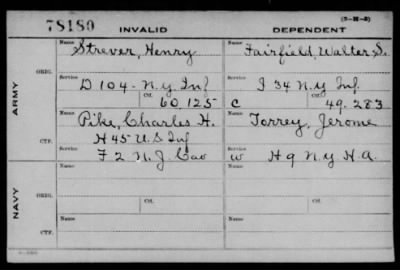 (3-H-2)
78180 INVALID DEPENDENT
ARMY
ORIG.
Name Strever, Henry
Service D 104 - N.Y. Inf
Ctf. 60,125
Name Fairfield, Walter S.
Service I 34 N.Y. Inf.
C Ctf. 49,283
CTF.
Name Pike, Charles H.
Service H 45 U.S. Inf
F 2 N.J. Cav
Name Torrey, Jerome
Service
W H 9 N.Y. H.A.
NAVY
ORIG.
Name
Service
Ctf.
Name
Service
Ctf.
CTF.
Name
Name